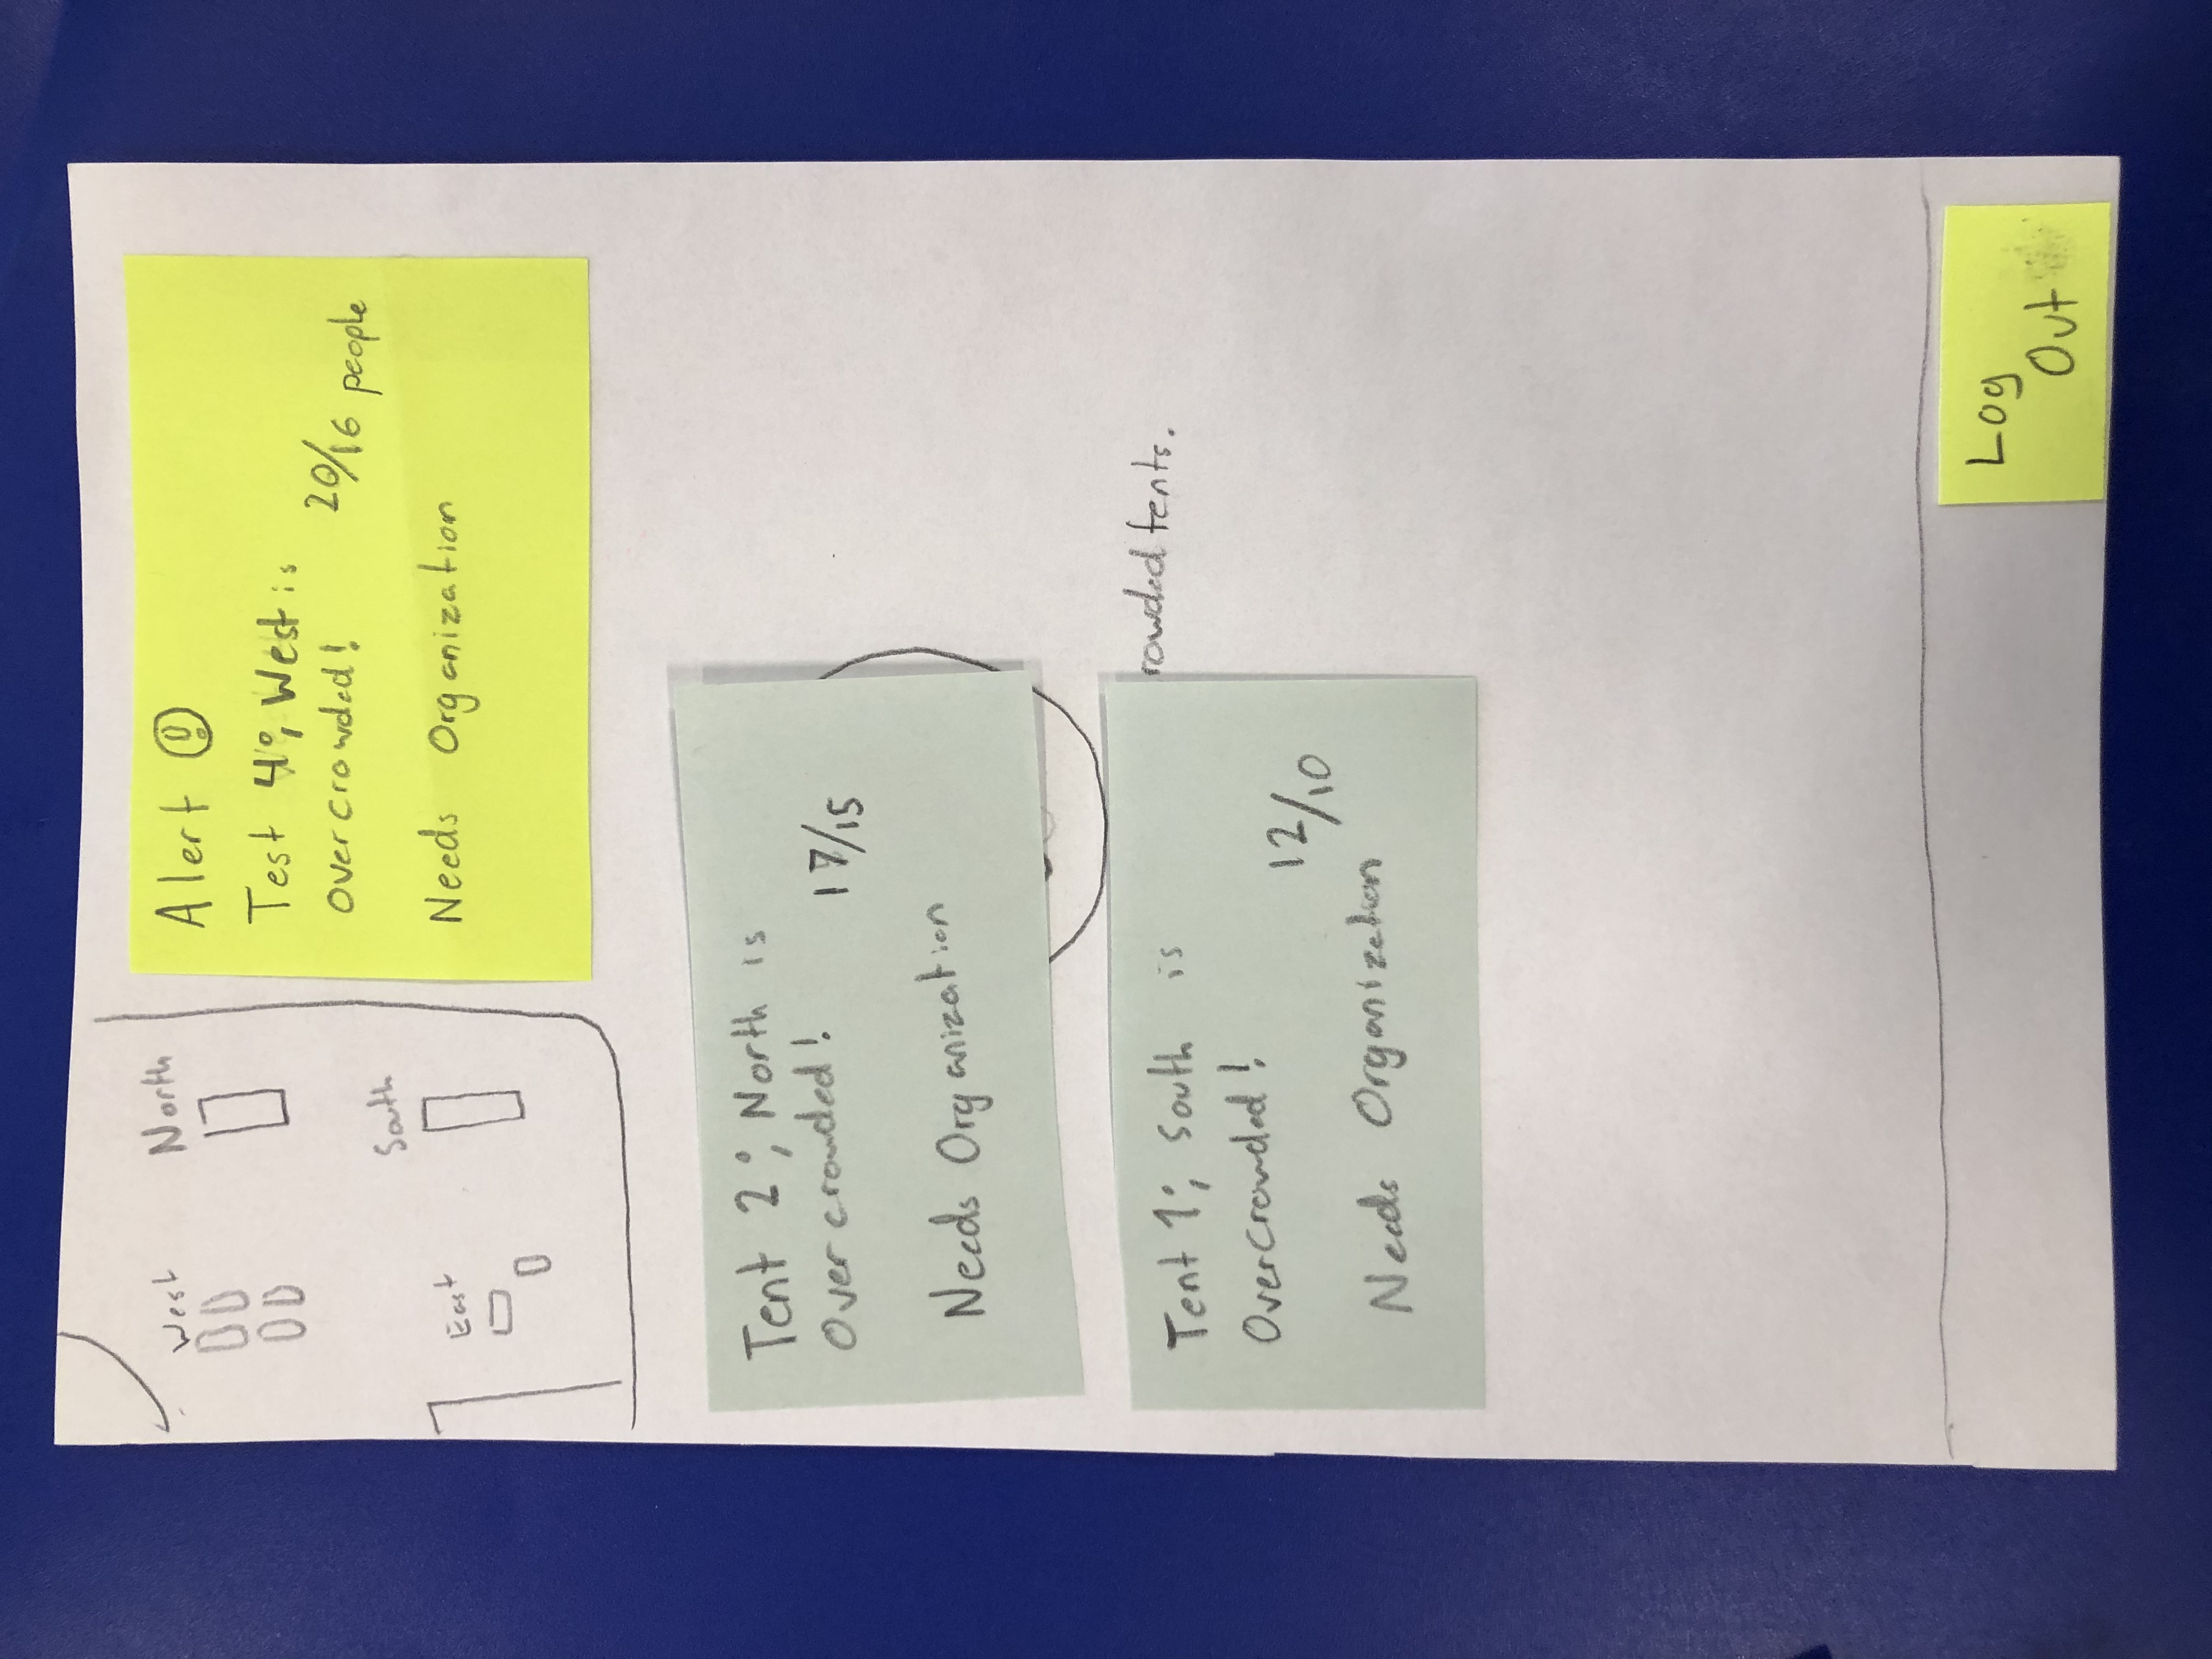 West
North
South
East
Alert !
Test 4; West is
Overcrowded!
20/16 people
Needs Organization
Tent 2; North is
Overcrowded!
17/15
Needs Organization
rowded tents.
Tent 1; South is
Overcrowded!
12/10
Needs Organization
Log
Out